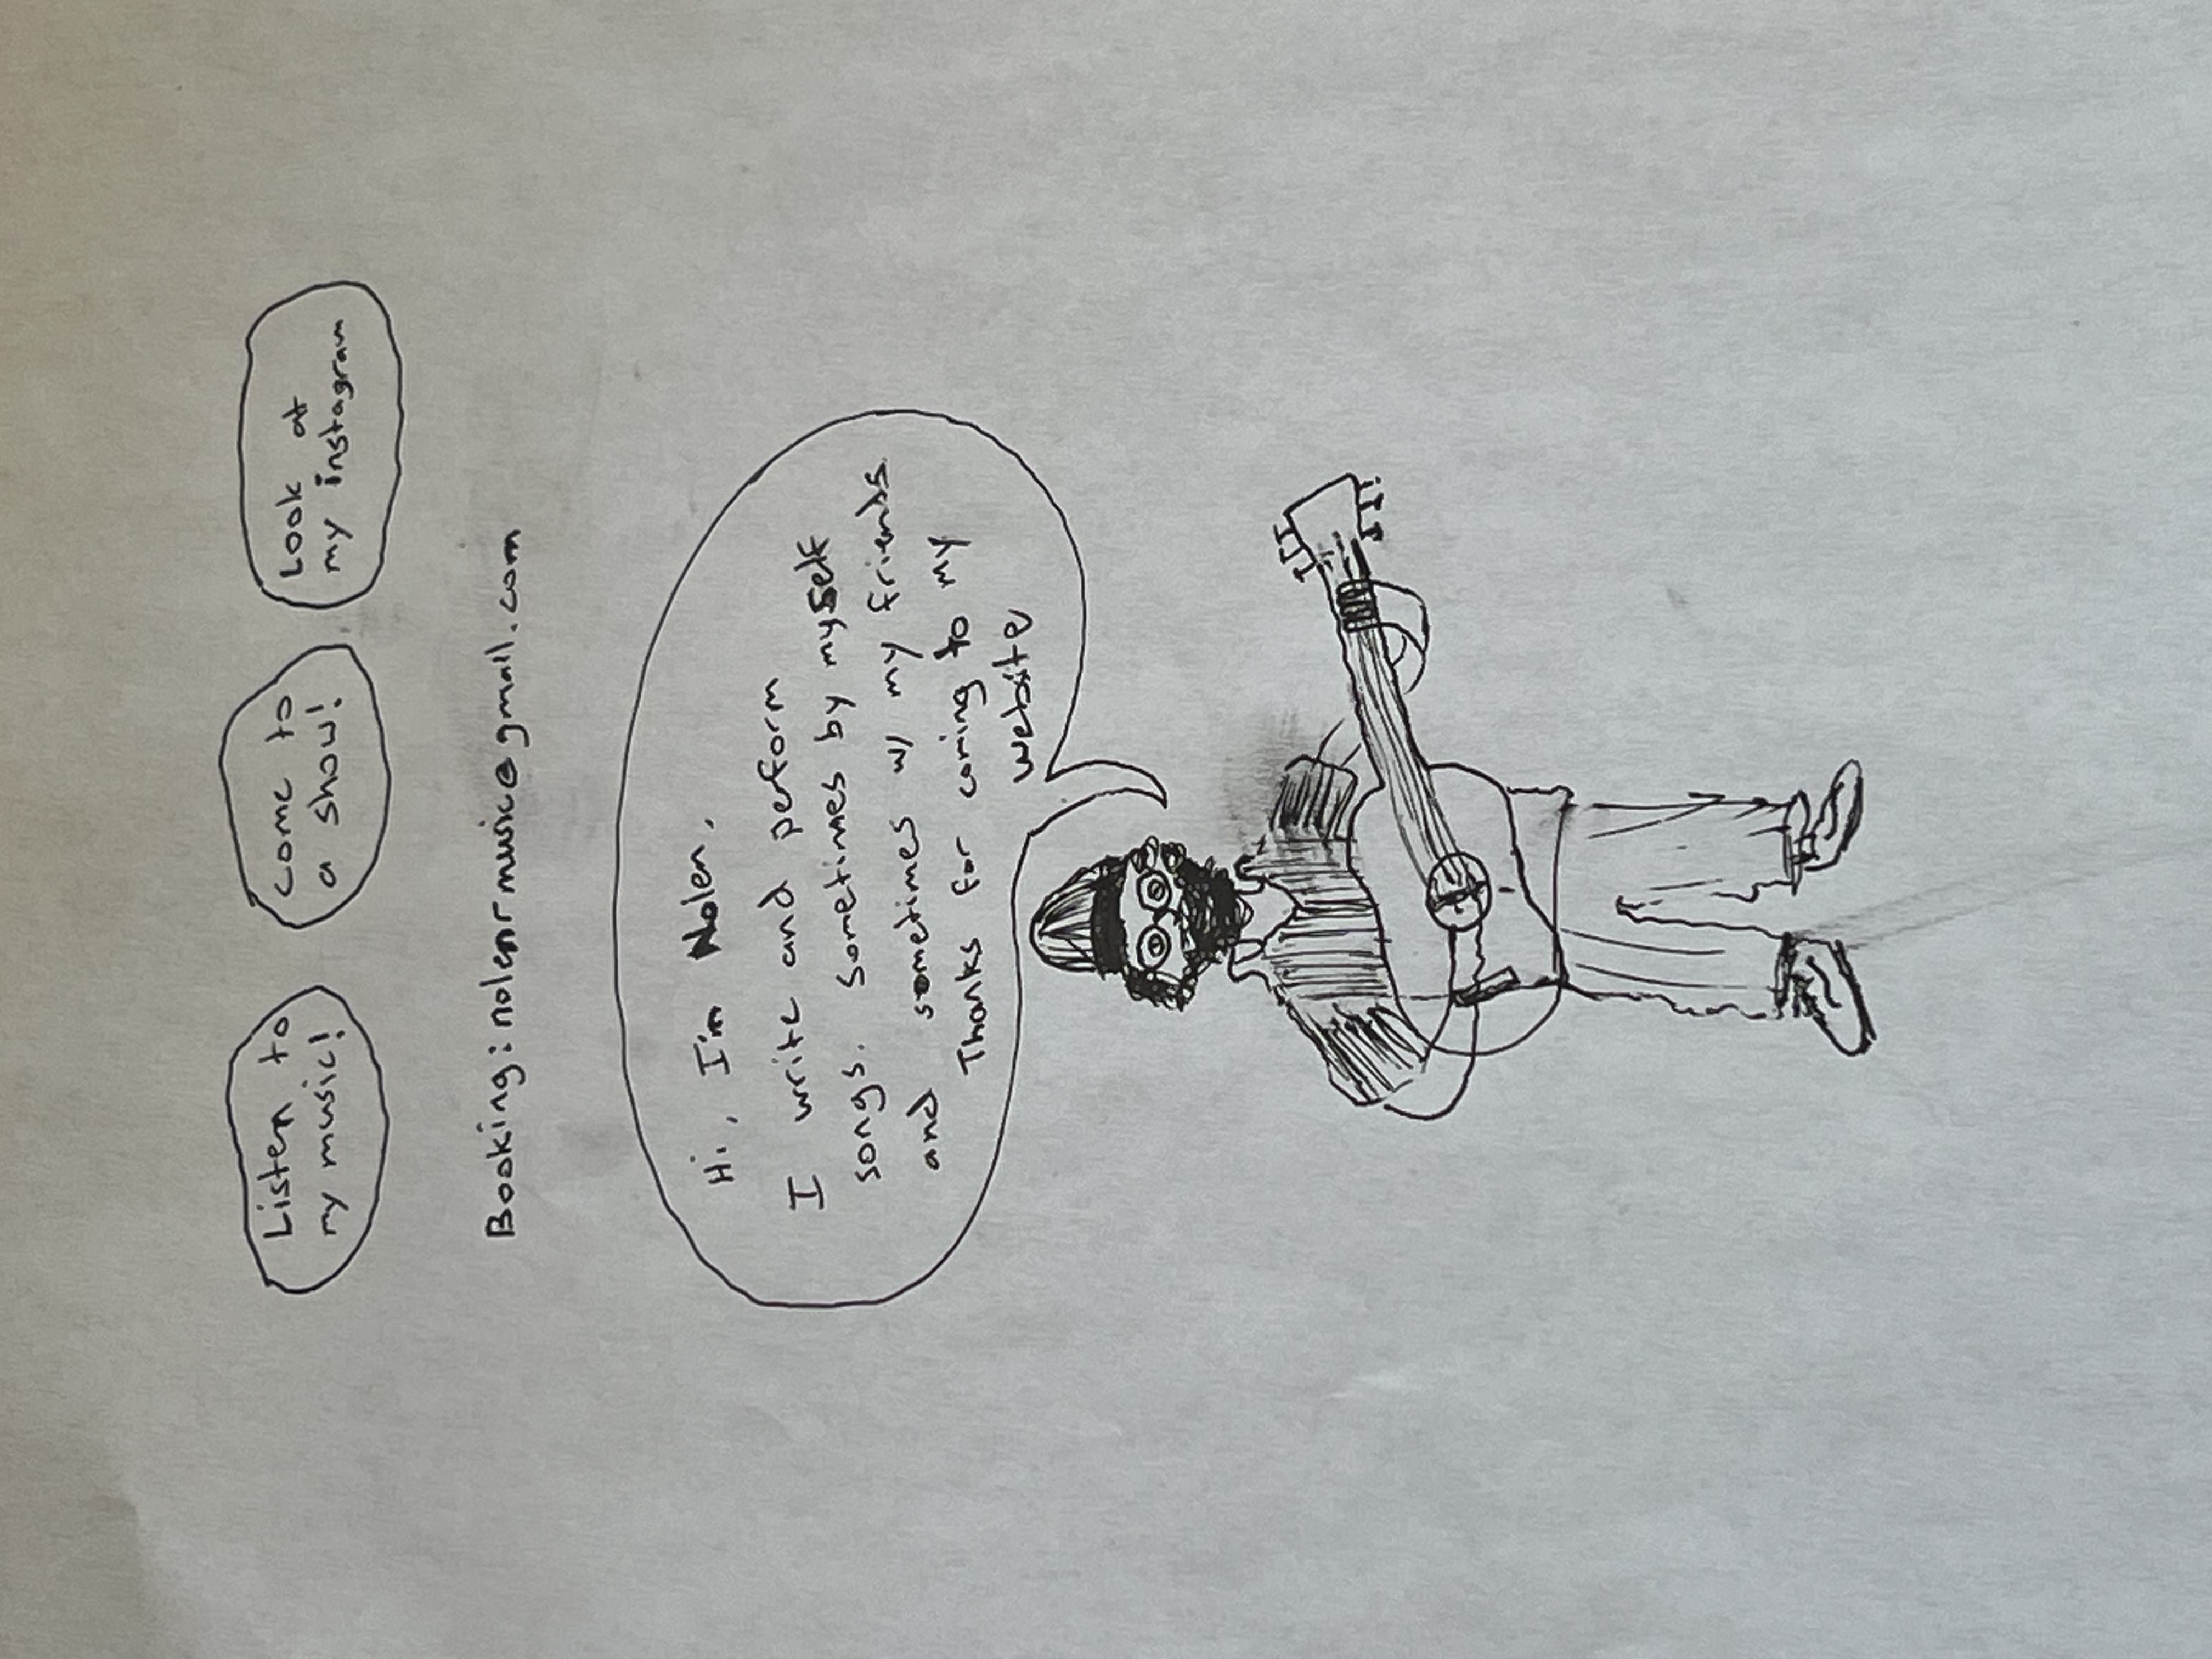 Listen to
my music!
come to
a show!
Look at
my instagram
Booking: nolenrmusic@gmail.com
Hi, I'm Nolen,
I write and perform
songs. sometimes by myself
and sometimes w/ my friends
Thanks for coming to my
website